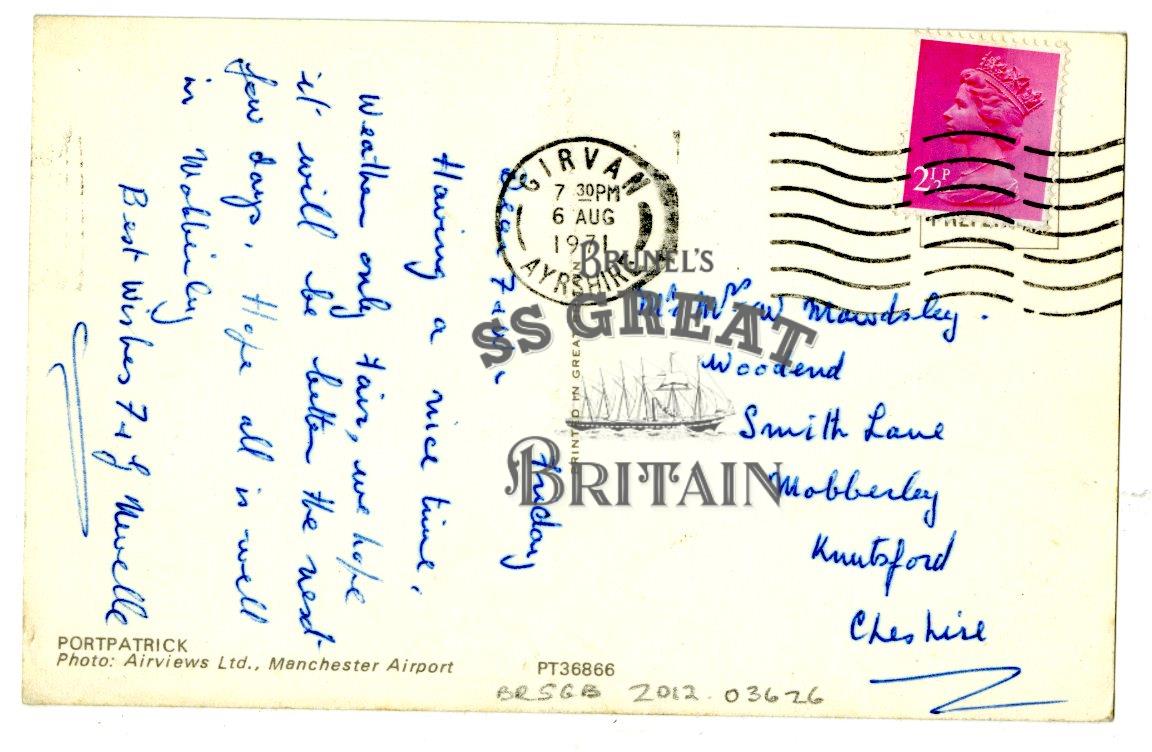 Friday
Having a nice time,
Weather only fair, we hope
it will be better the next
few days. Hope all is well
in Mobberley
Best Wishes F + G
GIRVAN
7 30PM
6 AUG
1971
AYRSHIRE
2½P
Mr Mrs W Mawdsley.
Woodend
Smith Lane
Mobberley
Knutsford
Cheshire
PRINTED IN GREAT
BRUNEL'S
SS GREAT
BRITAIN
PORTPATRICK
Photo: Airviews Ltd., Manchester Airport
PT36866
BRSGB 2012.03626